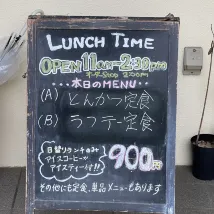 LUNCH TIME
OPEN 11:00〜2:30
...本日のMENU...
(A) とんかつ定食
(B) ラフテー定食
日替りランチのみ
アイスコーヒーか
アイスティー付!!
900円
その他にも定食、単品メニューもあります